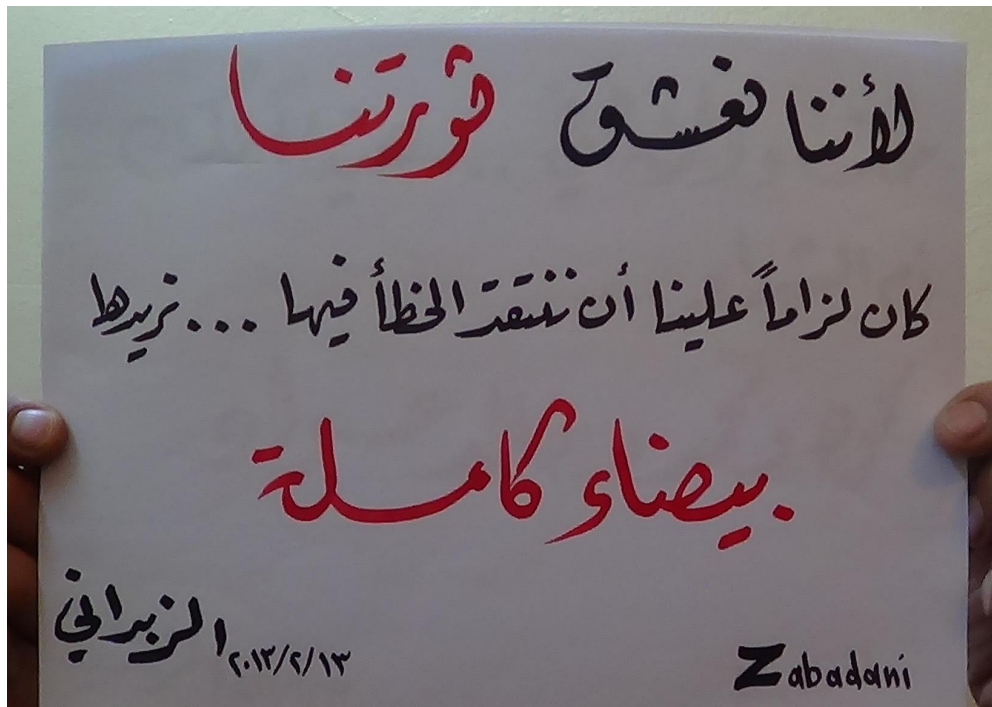 لأننا نعشق ثورتنا
كان لزاماً علينا أن ننتقد الخطأ فيها ... نريدها
بيضاء كاملة
الزبداني ٢٠١٣/٢/١٣
Zabadani